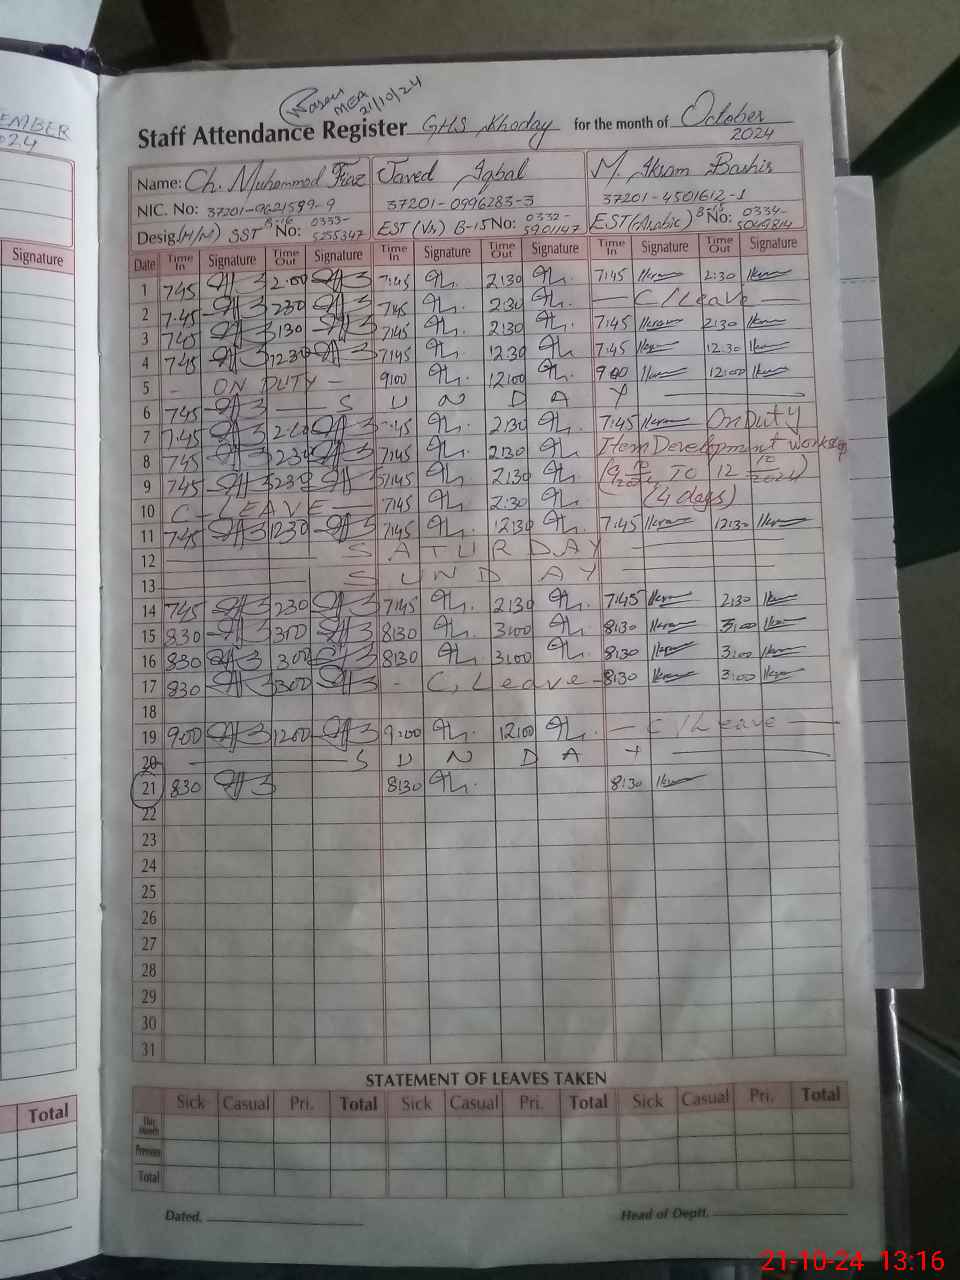 EMBER
024
Signature
Total
MEA
21/10/24
Staff Attendance Register GHS Khoday for the month of October
2024
Name: Ch. Muhammad Fiaz Javed Iqbal M. Ikram Bashir
NIC. No: 37201-9621599-9 37201-0996283-3 37201-4501612-1
Desig. SST B-16 No: 0333-5255347 EST (Vr) B-15 No: 0332-5901147 EST (Arabic) No: 0334-5049814
Date Time In Signature Time Out Signature Time In Signature Time Out Signature Time In Signature Time Out Signature
1 7:45 2:00 7:45 2:30 7:45 2:30
2 7:45 2:30 7:45 2:30 C/Leave
3 7:45 1:30 7:45 2:30 7:45 2:30
4 7:45 12:30 7:45 12:30 7:45 12:30
5 - ON DUTY - 9:00 12:00 9:00 12:00
6 7:45 S U N D A Y
7 7:45 7:45 2:30 7:45 On Duty
8 7:45 2:30 7:45 2:30 Item Development Workshop
9 7:45 2:30 7:45 2:30 TO 12 10/2024
10 C-LEAVE 7:45 2:30 (4 days)
11 7:45 12:30 7:45 12:30 7:45 12:30
12 SATURDAY
13 SUNDAY
14 7:45 2:30 7:45 2:30 7:45 2:30
15 8:30 3:00 8:30 3:00 8:30 3:00
16 8:30 3:00 8:30 3:00 8:30 3:00
17 8:30 3:00 - C, Leave - 8:30 3:00
18
19 9:00 12:00 9:00 12:00 - C/Leave
20 S U N D A Y
21 8:30 8:30 8:30
22
23
24
25
26
27
28
29
30
31
STATEMENT OF LEAVES TAKEN
Sick Casual Pri. Total Sick Casual Pri. Total Sick Casual Pri. Total
This Month
Previous
Total
Dated. Head of Deptt.
21-10-24 13:16